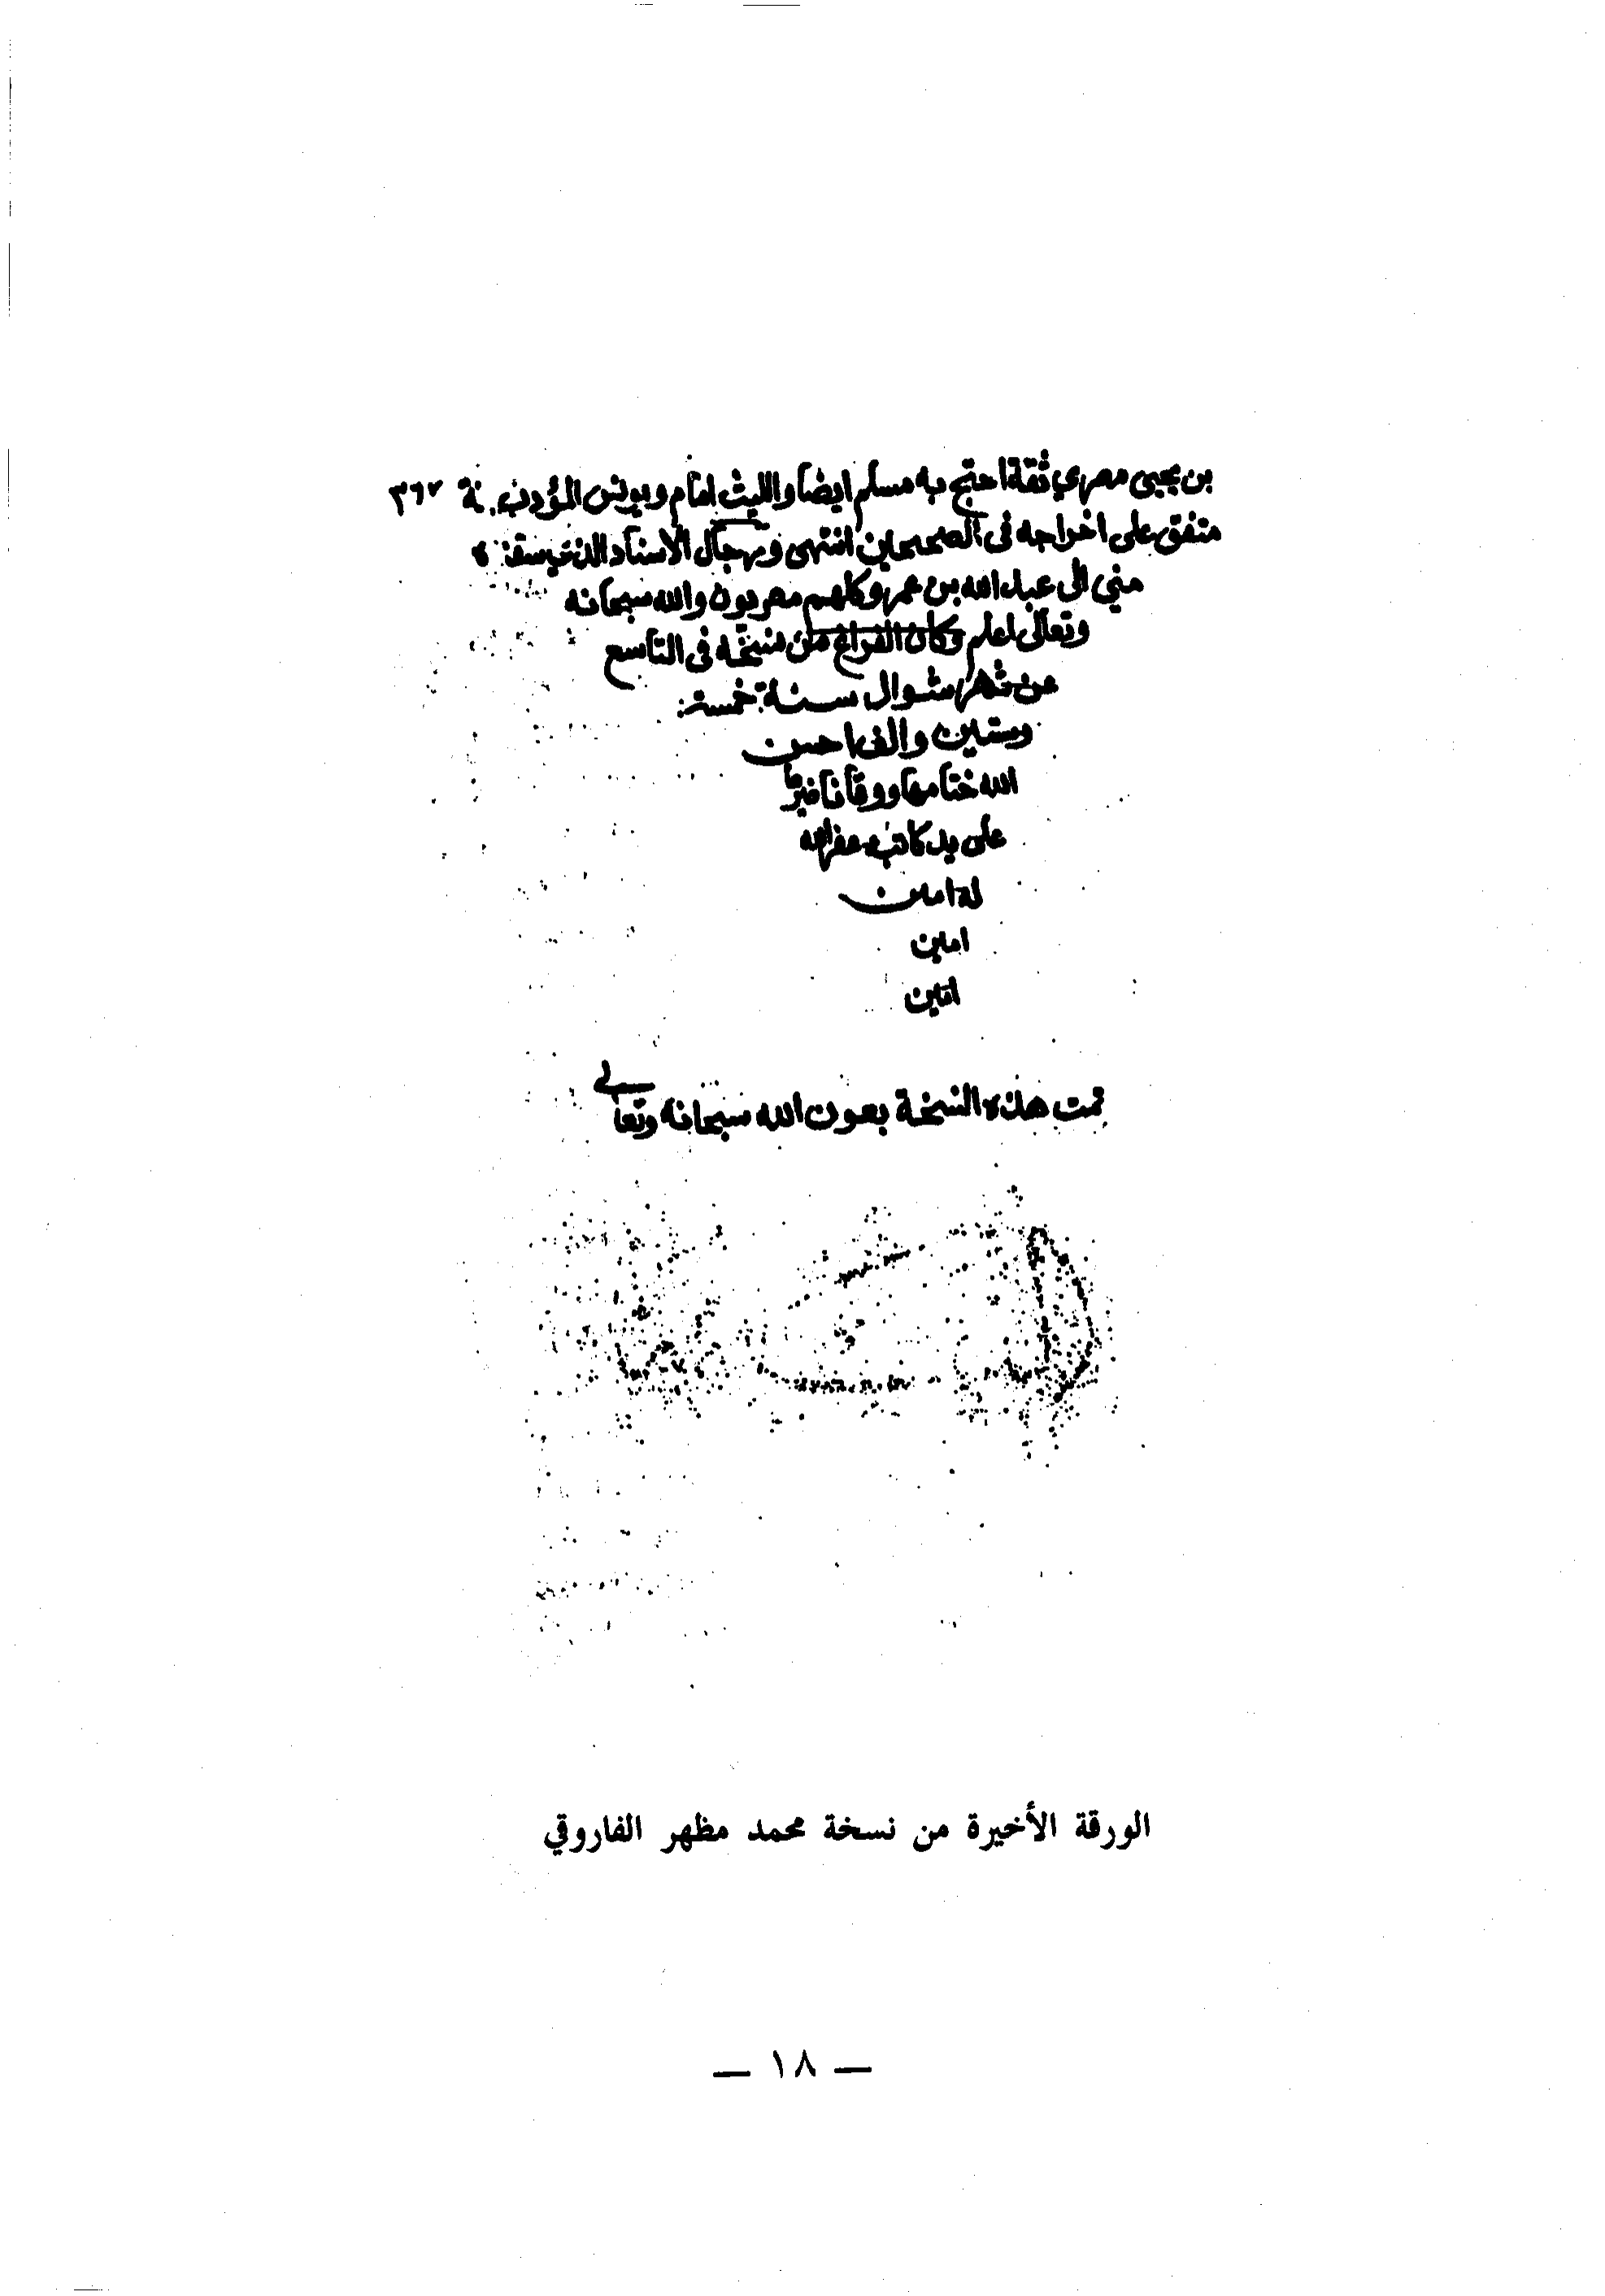 بن يحيى مصري ثقة احتج به مسلم ايضا والليث امام ويونس المؤدب ثقة ٣٦٧
متفق على اخراجه فى الصحيحين انتهى ورجال الاسناد الذي سقنه
مني الى عبد الله بن عمرو كلهم مصريون والله سبحانه
وتعالى اعلم وكان الفراغ من نسخه فى التاسع
من شهر شوال سنة خمسة
وستين والف احسن
الله ختامها ووقانا
على يد كاتبه غفر الله
له امين
امين
امين
تمت هذه النسخة بعون الله سبحانه وتعالى
الورقة الأخيرة من نسخة محمد مظهر الفاروقي
— ١٨ —